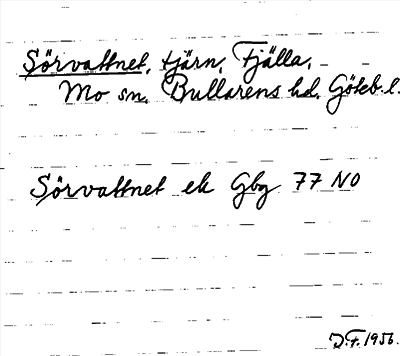 Sörvattnet, tjärn, Fjälla,
Mo sn. Bullarens hd. Göteb. l.
Sörvattnet ek Gbg 77 NO
D.F. 1956.